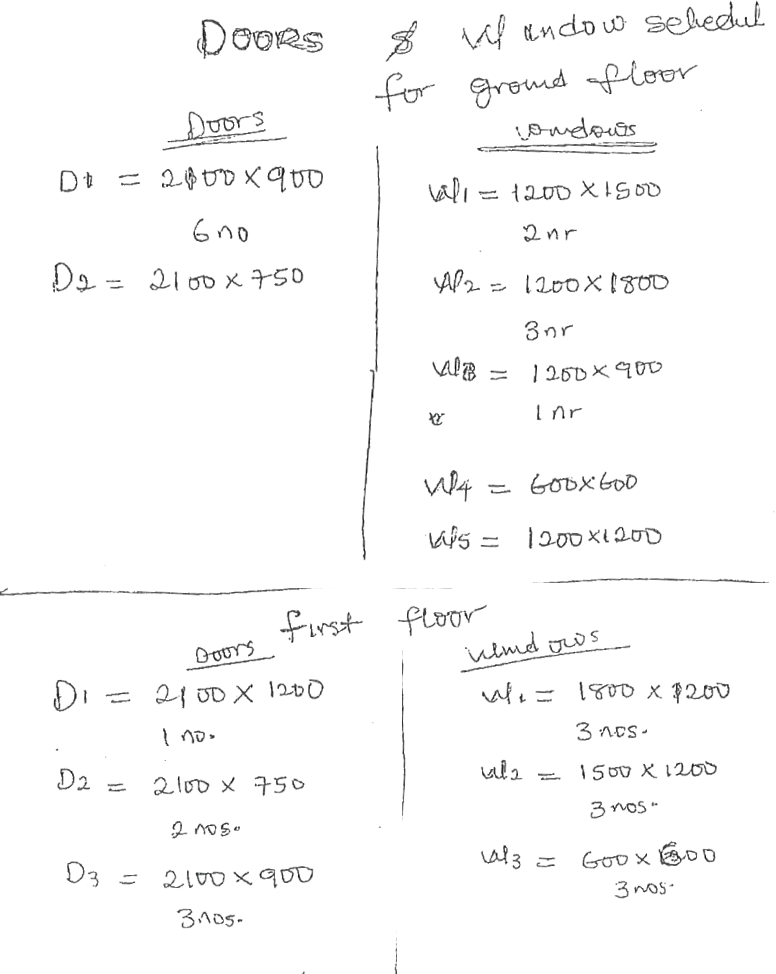 Doors & Window schedul
for ground floor
Doors
D1 = 2100 x 900
6 no
D2 = 2100 x 750
windows
W1 = 1200 x 1500
2 nr
W2 = 1200 x 1800
3 nr
W3 = 1200 x 900
1 nr
W4 = 600 x 600
W5 = 1200 x 1200
first floor
Doors
D1 = 2100 x 1200
1 no.
D2 = 2100 x 750
2 nos.
D3 = 2100 x 900
3 nos.
windows
W1 = 1800 x 1200
3 nos.
W2 = 1500 x 1200
3 nos.
W3 = 600 x
3 nos.